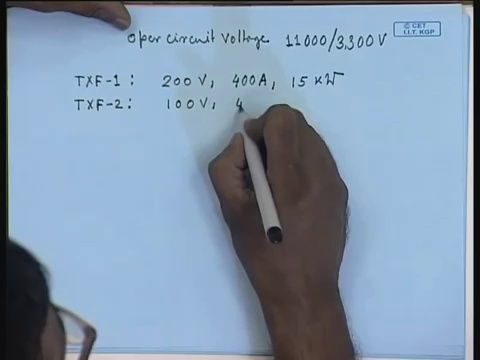 © CET
I.I.T. KGP
Open circuit Voltage 11000/3,300 V
TXF-1: 200 V, 400A, 15 KW
TXF-2: 100V, 4